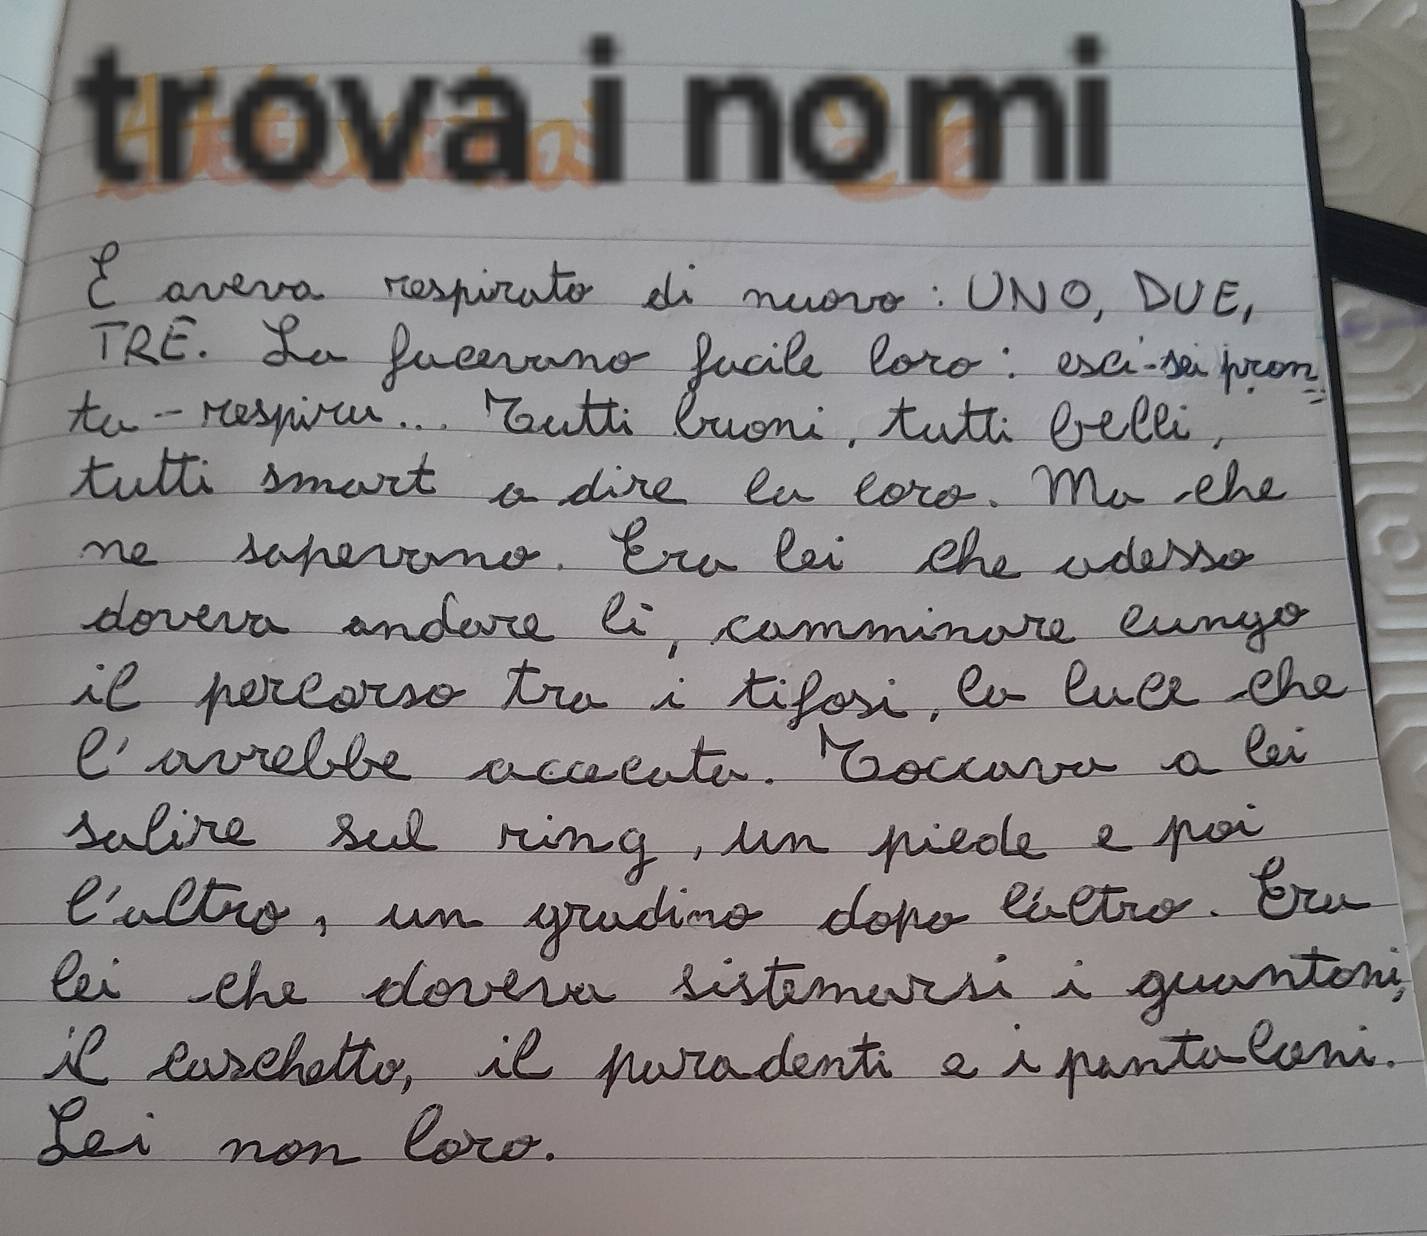 trova i nomi
E aveva respirato di nuovo: UNO, DUE,
TRE. La facevano facile loro: esci-sei pron=
ta-respira... Tutti buoni, tutti belli,
tutti smart a dire la loro. Ma che
ne sapevano. Era lei che adesso
doveva andare lì, camminare lungo
il percorso tra i tifosi, la luce che
l'avrebbe accecata. Toccava a lei
salire sul ring, un piede e poi
l'altro, un gradino dopo l'altro. Era
lei che doveva sistemarsi i guantoni,
il caschetto, il paradenti e i pantaloni.
Lei non loro.